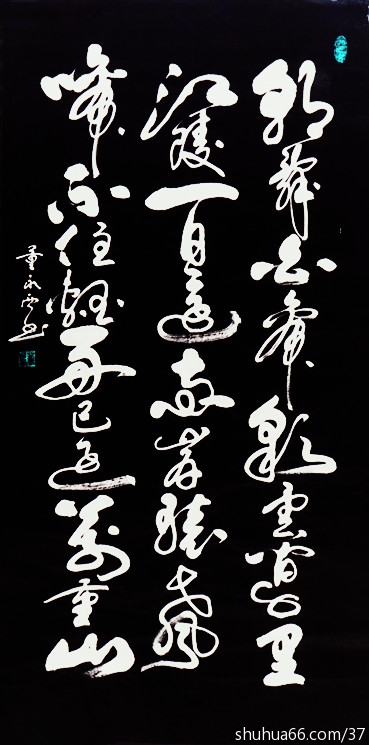 朝辭白帝彩雲間千里
江陵一日還兩岸猿聲
啼不住輕舟已過萬重山
董永書
shuhua66.com/37